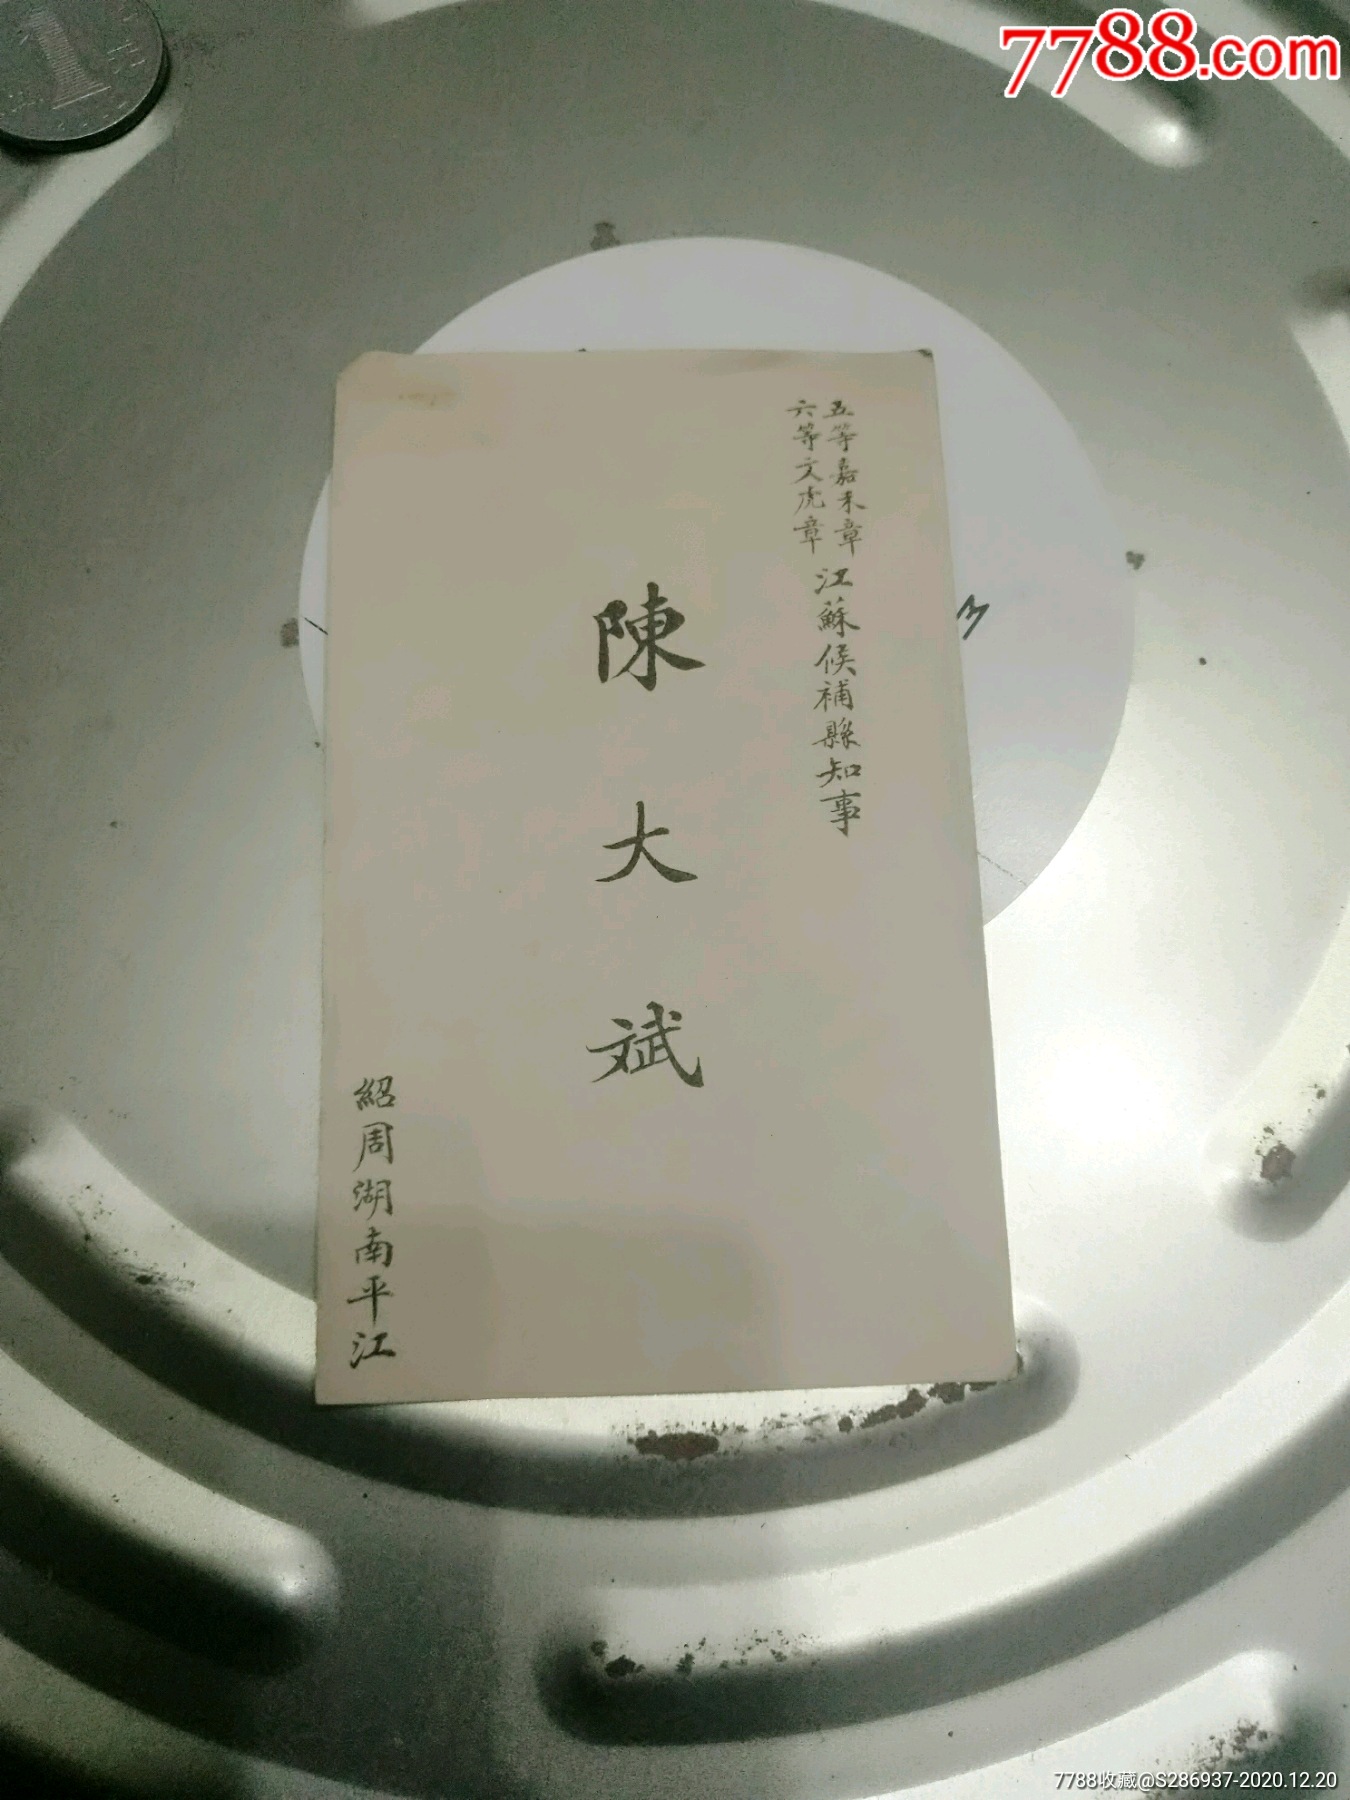 7788.com
五等嘉禾章
六等文虎章
江蘇候補縣知事
陳大斌
紹周湖南平江
7788收藏@S286937-2020.12.20